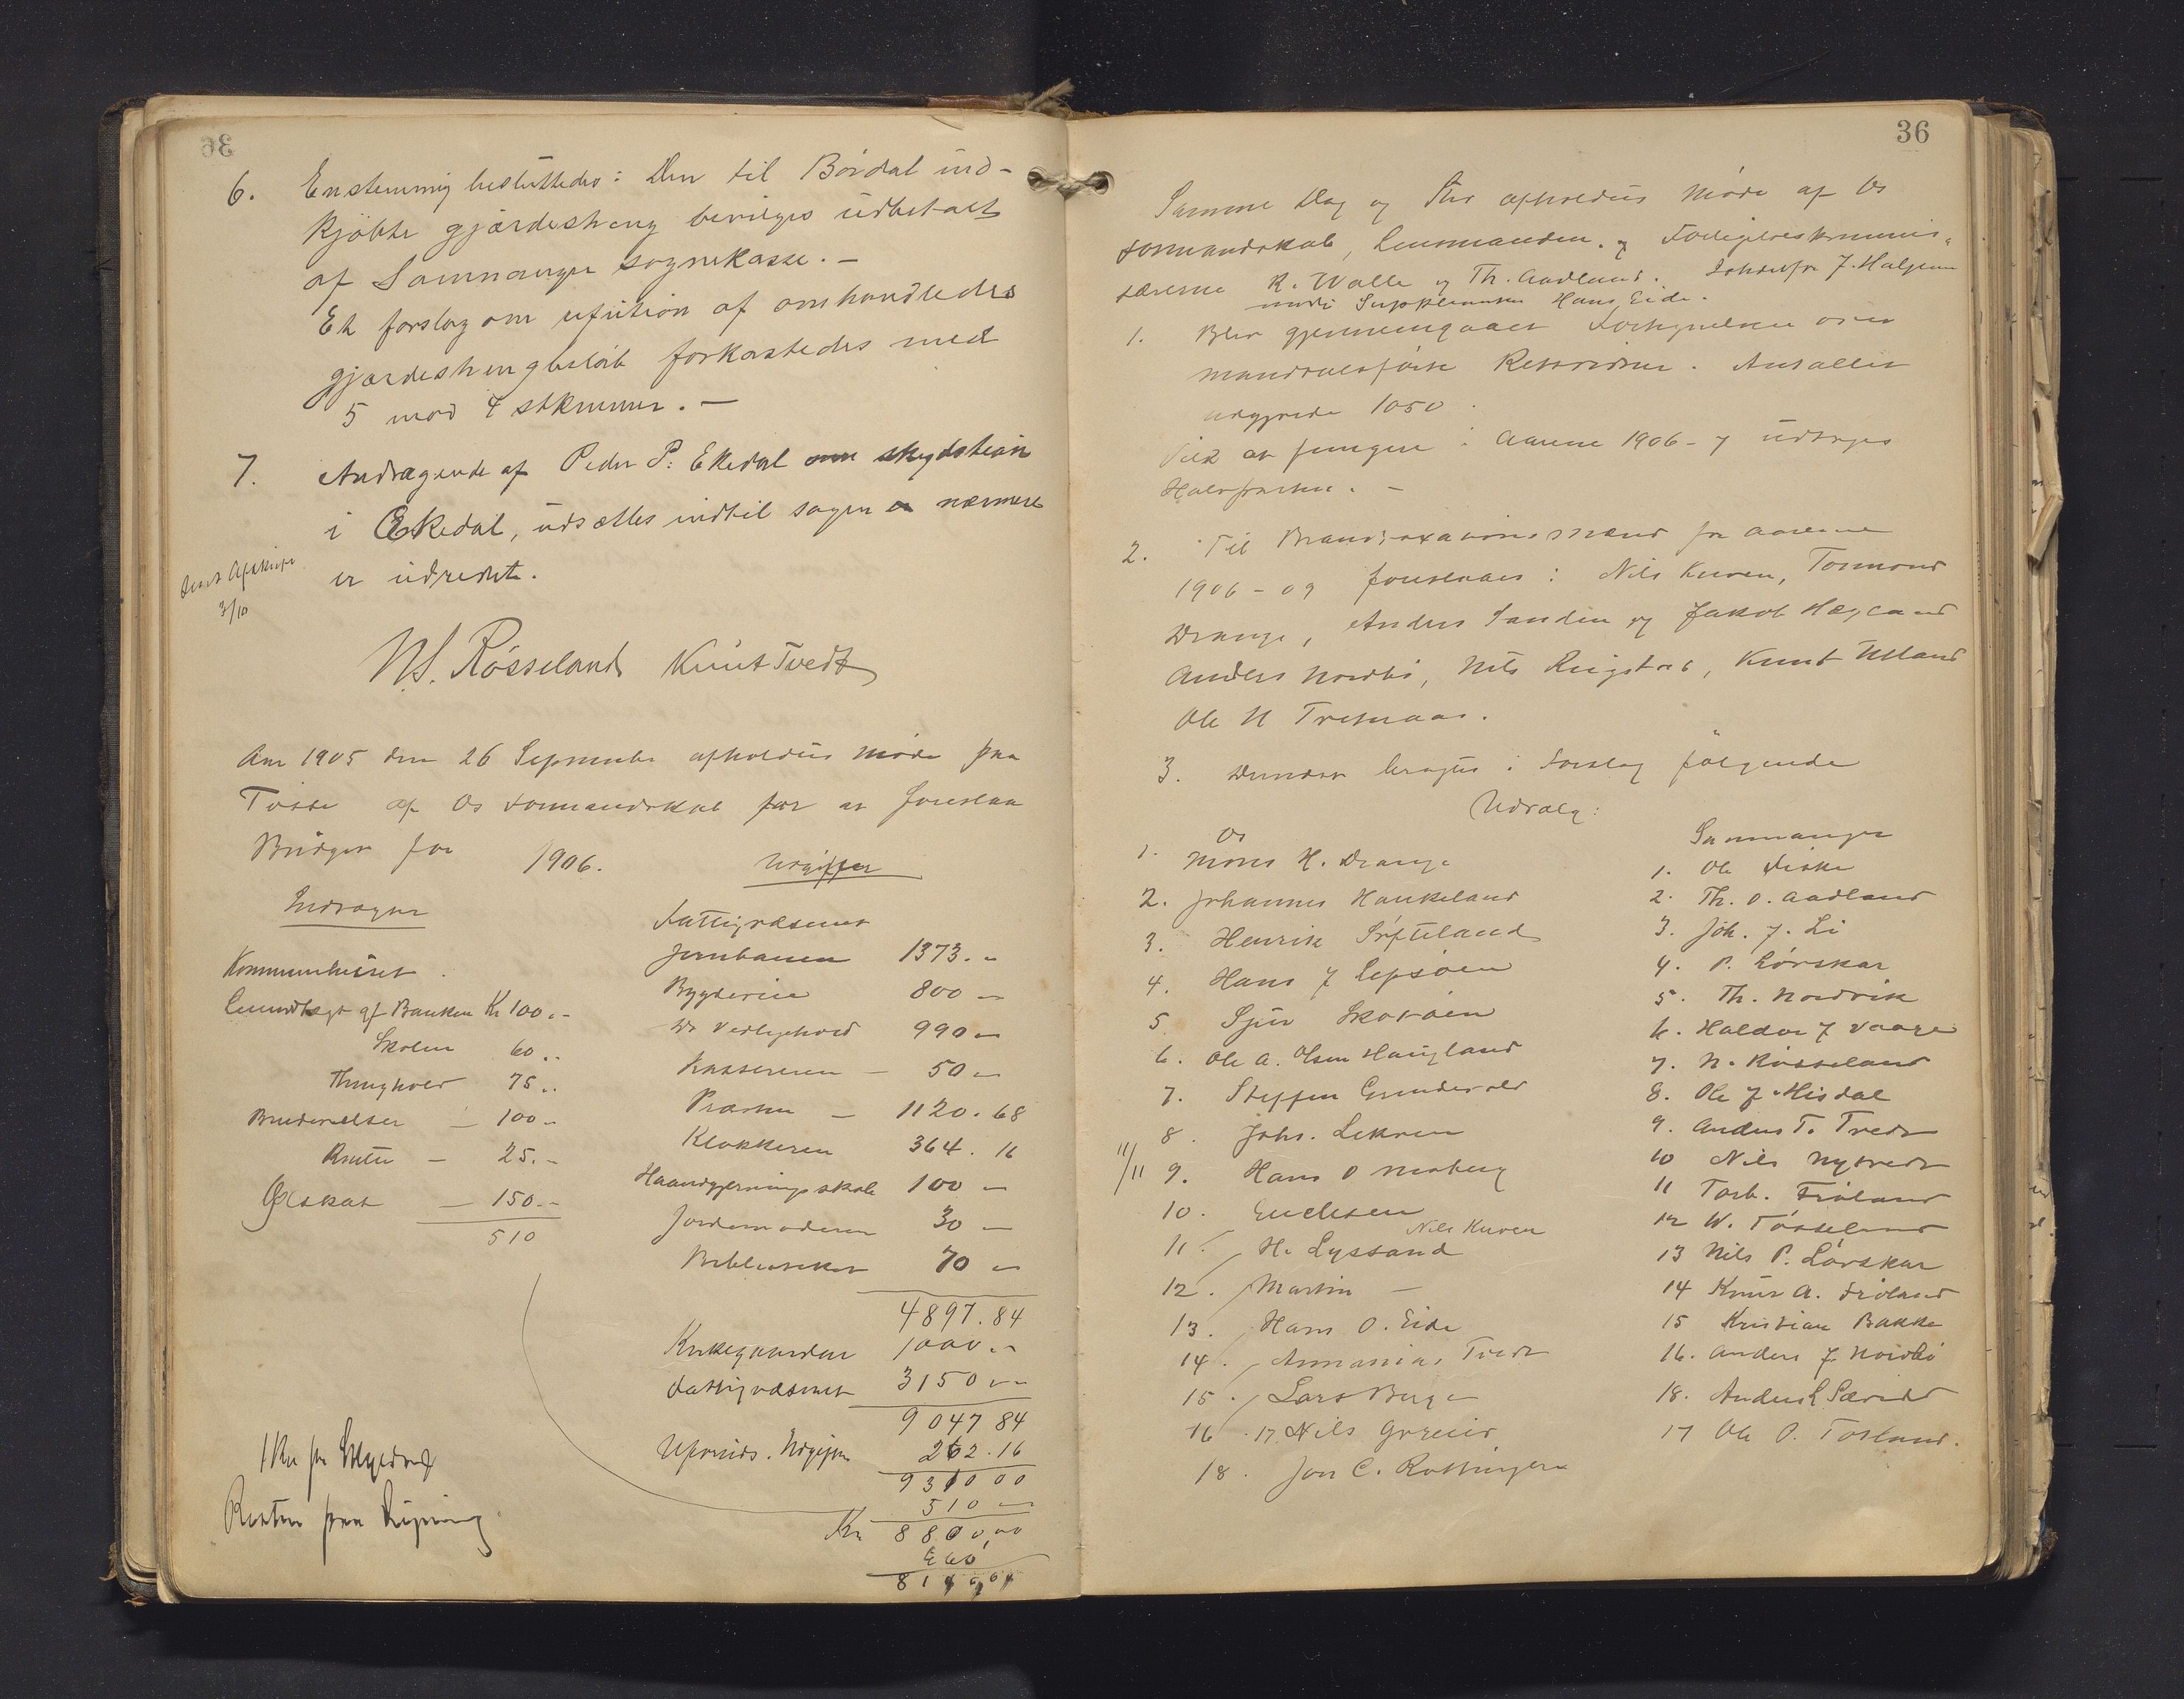 6. Enstemmig besluttedes: Den til Bördal ind-
kjöbte gjærdestreng bevilges udbetalt
af Samnanger sognekasse. —
Et forslag om refution af omhandledes
gjærdestrengbelöb forkastedes med
5 mod 4 stemmer. —
7. Andragende af Peder P. Ekedal om skydstion
i Ekedal, udsættes indtil sagen er nærmere
er udredet.
Afskrift
3/10
N. Rösseland Knut Tvedt
Aar 1905 den 26 September afholdtes Møde paa
Tøsse af Os Formandskab for at foreslaa
Budget for 1906.
Indtægter
Udgifter
Kommunhuset
af Banken Kr 100.-
Skolen 60..
Thinghold 75..
100 -
25. -
Ølskat — 150 -
510
Fattigvæsenet
Jernbanen 1373. -
Bygdeveie 800 -
Do Vedligehold 990 -
Kassereren — 50 -
Præsten — 1120.68
Klokkeren 364.16
Haandgjerningsskole 100 -
Jordemoderen 30 -
Biblioteket 70 -
4897.84
Kirkegaarden 1000. -
Fattigvæsenet 3150 -
9047 84
Uforuds. Udgifter 262.16
9310 00
510 -
Kr 8800,00
660
1 Kr for
Renten paa
36
Samme Dag og Sted afholdtes Møde af Os
Formandskab, Lensmanden og Forligelseskommis-
særerne K. Walle og Th. Aadland. Istedetfor J. Halgjem
mødte Suppleanten Hans Eide.
1. Blev gjennemgaaet Fortegnelsen over
mandtalsførte Retsvidner. Antallet
udgjorde 1050.
Til at fungere i Aarene 1906-7 udtoges
Halvparten. —
2. Til Brandtaxationsmænd for Aarene
1906-09 foreslaaes: Nils Kuven, Tormond
Drange, Anders Sanden og Jakob Hegland
Anders Nordbö, Nils Rugstad, Knut Ulland
Ole N Tveitaas.
3. bragtes i Forslag følgende
Udvalg:
Os
1. Mons H. Drange
2. Johannes Haukeland
3. Henrik Søfteland
4. Hans J Lepsøen
5. Sjur Skovøen
6. Ole A. Olsen Haugland
7. Steffen Grindevold
8. Johs. Lekven
11/11 9. Hans O Moberg
10. Endresen
Nils Kuven
11. H. Lyssand
12. Martin —
13. Hans O. Eide
14. Annanias Tvedt
15. Lars Berge
16. 17 Nils
18. Jon C. Rottingen
Samnanger
1. Ole Fiske
2. Th. O. Aadland
3. Joh. J. Li
4. P. Lörskar
5. Th. Nordvik
6. Haldor J Vaage
7. N. Rösseland
8. Ole J Misdal
9. Anders T. Tvedt
10 Nils Nytvedt
11 Torb. Fröland
12 W. Tösseland
13 Nils P. Lörskar
14 Knut A. Fröland
15 Kristian Bakke
16. Anders J. Nordbö
18. Anders L Sævild
17 Ole O. Totland.